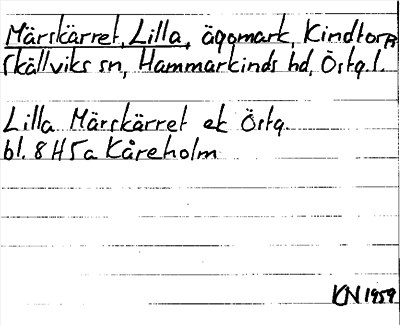 Märskärret, Lilla, ägomark, Kindtorp
Skällviks sn, Hammarkinds hd, Östg. l.
Lilla Märskärret ek Östg.
bl. 8 H 5a Kåreholm
KN 1959